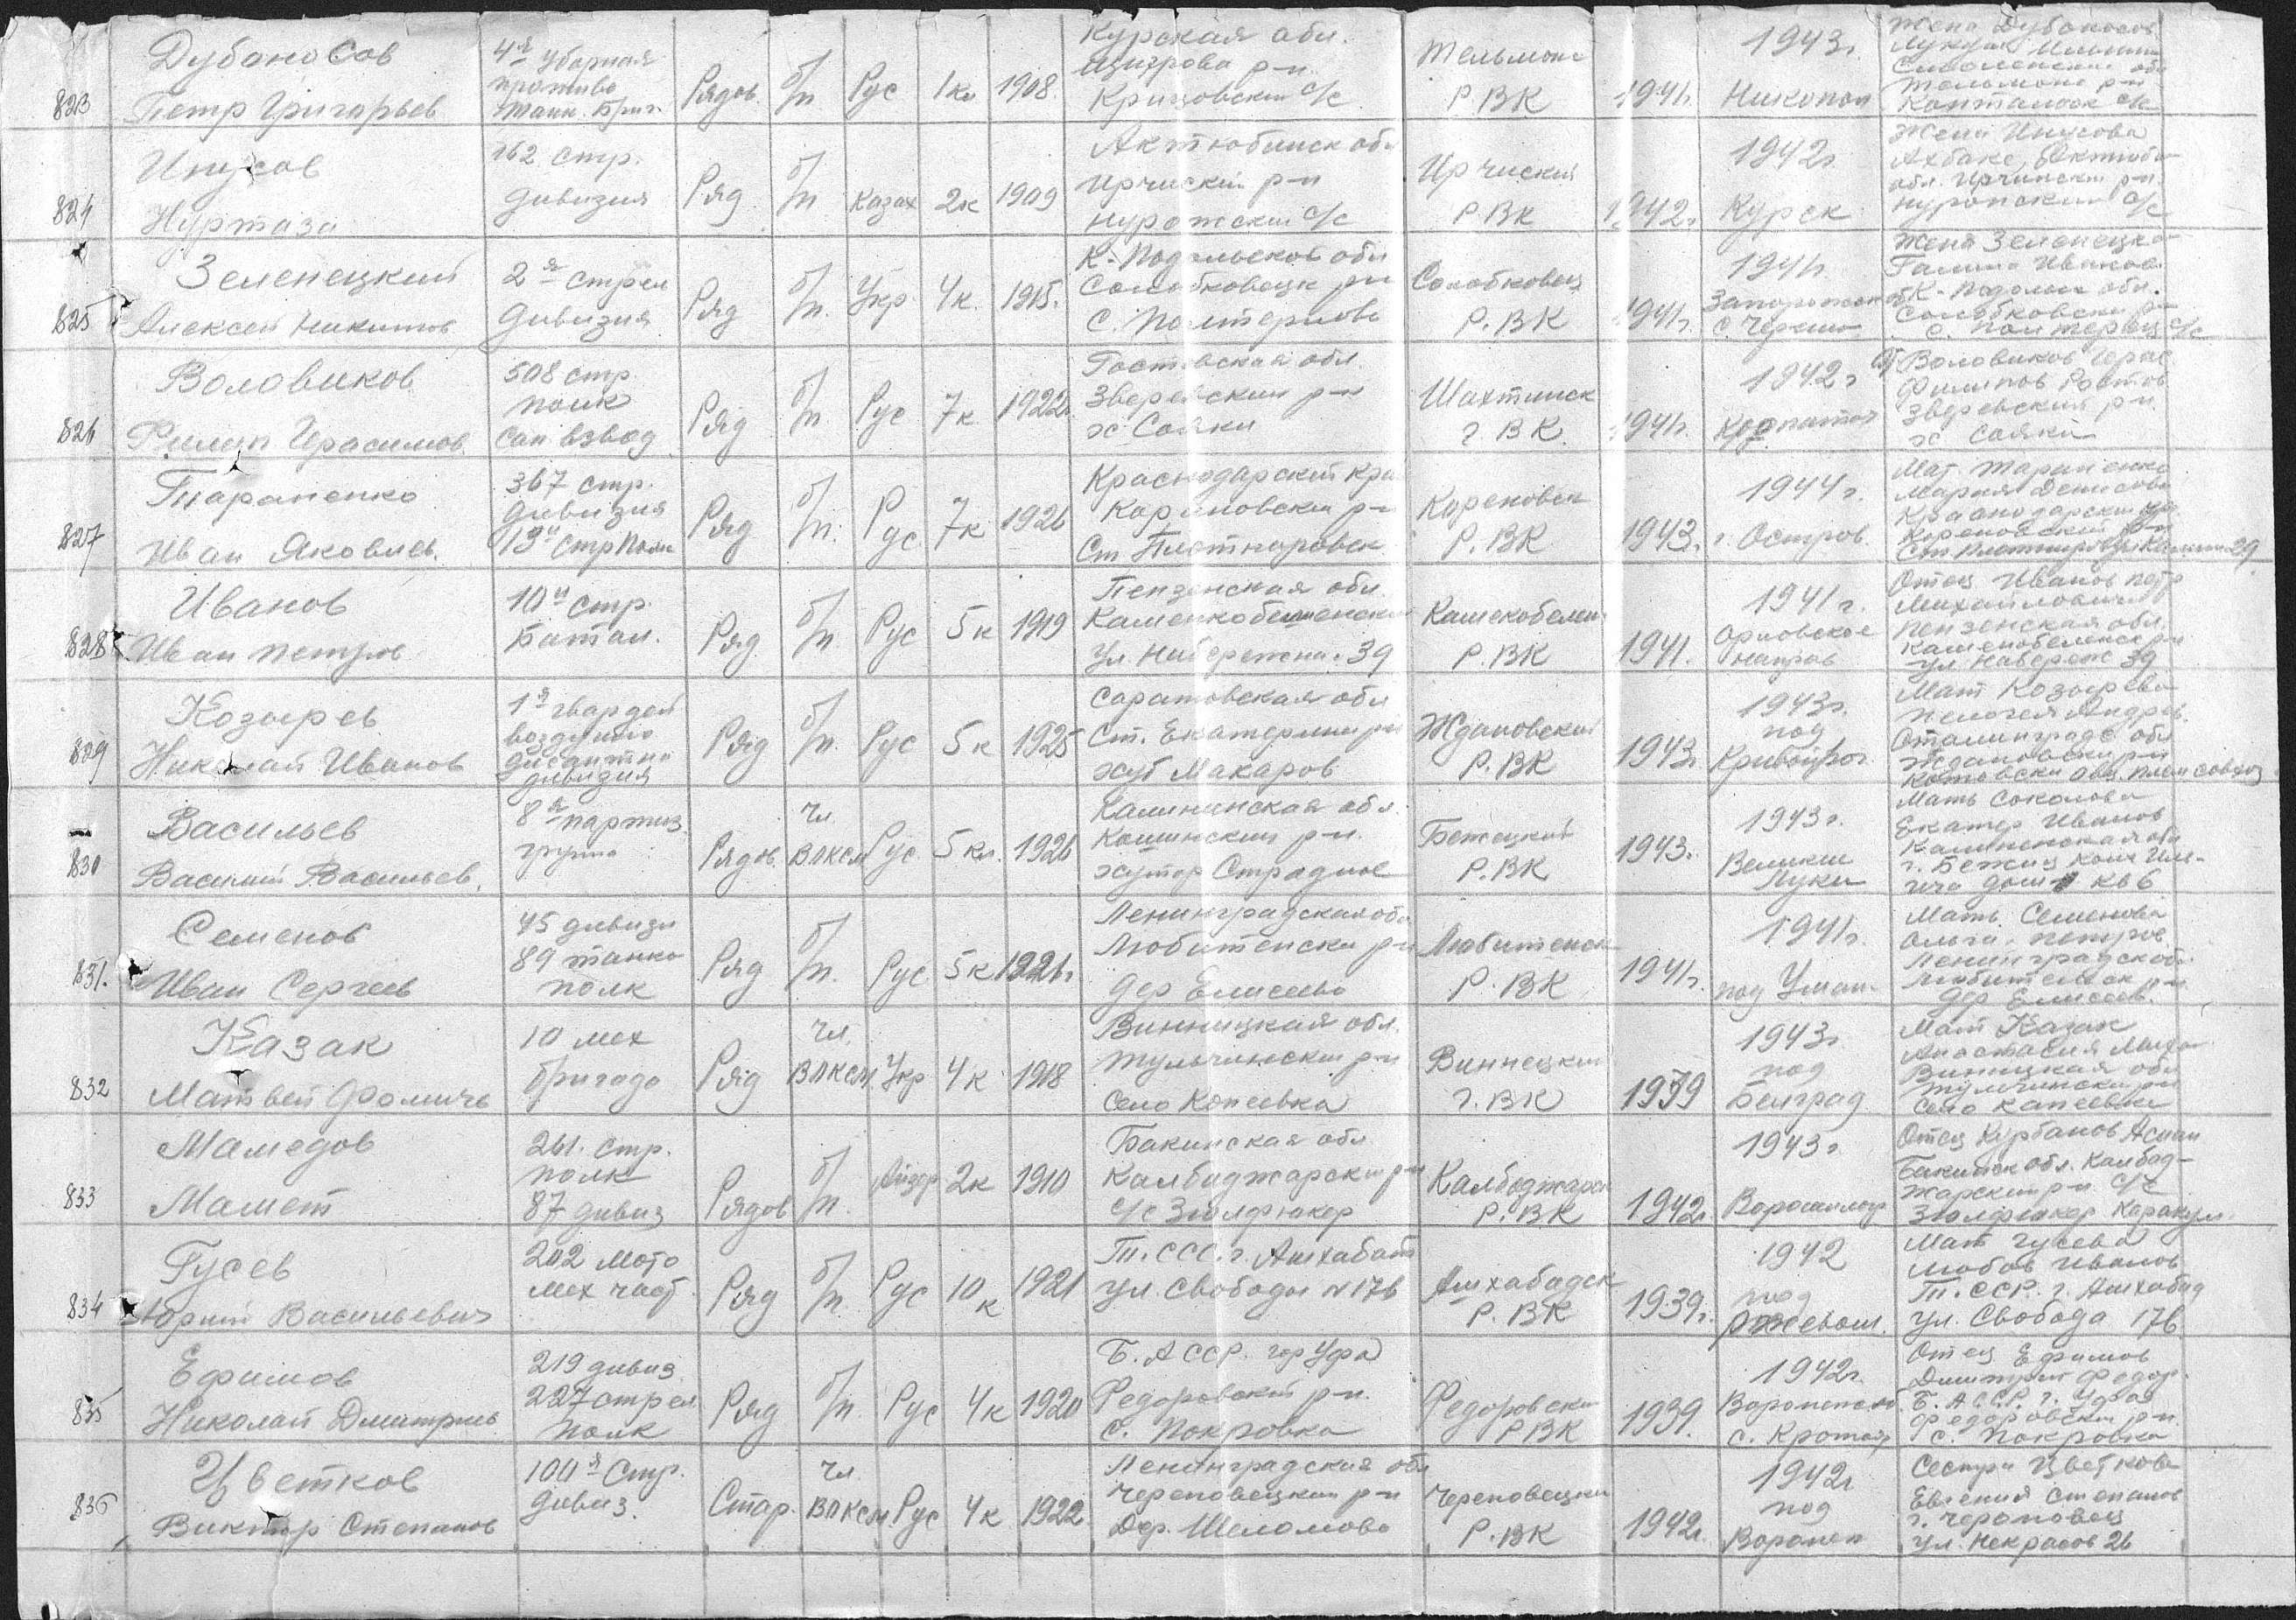 823
Дубоносов
Петр Григорьев
4я Уборная
противо
танк. Бриг.
Рядов.
б/п
Рус
1кл
1908.
Курская обл.
Щигрова р-н.
Крицовский с/с
Тельмона
Р.ВК
1941г.
1943г.
Никопол
Жена Дубоносов.
Смоленская обл
Тельмона р-н
824
Инусов
Нуртаза
162 стр.
дивизия
Ряд
б/п
Казах
2к
1909
Актюбинск обл
Иргиский р-н
Нурожский с/с
Иргиский
Р.ВК
1942г.
1942г
Курск
Жена Инусова
Ахбаке, Актюби
обл. Иргински р-н.
Нуронский с/с
825
Зеленецкий
Алексей Никитов
2я стрел
дивизия
Ряд
б/п.
Укр
4к.
1915.
К-Подольской обл
Солобковецк р-н
с. Полтерново
Солобковец
Р.ВК
1941г.
1941г.
с. Черкио
Жена Зеленецко
Галина Иванов.
К-Подольс обл.
Солобковски р-н
с. Полтерец с/с
826
Воловиков
Филип Герасимов.
508 стр
полк
сан взвод
Ряд
б/п.
Рус
7к
1922г.
Ростовская обл.
Зверевский р-н
х Сояки
Шахтинск
г.ВК.
1941г.
1942г
Кропоткин
Воловиков Герас.
Филипов Ростов
Зверевский р-н.
х Сояки
827
Тараненко
Иван Яковлев.
367 стр.
дивизия
19й стр Полк
Ряд
б/п.
Рус
7к
1926
Краснодарский кра
Кореновский р-н
Ст. Платнировск
Кореновск
Р.ВК
1943.
1944г.
г. Остров.
Мат. Тараненко
Мария Денисова
Краснодарский кра
Кореновский р-н
Ст. Платнировск Калинин 29
828
Иванов
Иван Петров
10й стр.
Батал.
Ряд
б/п
Рус
5к
1919
Пензенская обл.
Каменкобеленски
Ул. Набережна. 39
Камекобелен
Р.ВК
1941.
1941г.
Орловское
направ
Отец Иванов Петр
Михайлович
Пензенская обл.
Каменобеленск р-н
ул. Набереж 39
829
Козырев
Николай Иванов
1я гвардей
воздушно
дисантна
дивизия
Ряд
б/п.
Рус
5к
1925
Саратовская обл
Ст. Екатерини р-н
хут Макаров
Ждановский
Р.ВК
1943г.
1943г.
под
Кривой Рог.
Мат Козырева
Пелогея Андрев.
Сталинград обл
Ждановски р-н
Котовски овц. племсовхоз
830
Васильев
Василий Васильев.
8я партиз.
группа
Рядов.
чл
ВЛКСМ
Рус
5кл.
1926
Калининская обл.
Кашинский р-н.
хутор Страдное
Бежецкий
Р.ВК
1943г.
1943г.
Великие
Луки
Мать Соколова
Екатер Иванов
Калининская обл
г. Бежец
дом кв 6
831.
Семенов
Иван Сергеев
45 дивизи
89 танко
полк
Ряд
б/п.
Рус
5к
1926г
Ленинградская обл.
Любитенски р-н
дер Елисеево
Любитенск
Р.ВК
1941г.
1941г.
под Уман.
Мать Семенова
Ольга. Петров
Ленинградской.
Любительск р-н
дер Елисеев.
832
Казак
Матвей Фомичь
10 мех
бригада
Ряд
чл.
ВЛКСМ
Укр
4к
1918
Винницкай обл.
Тульчински р-н
Село Копеевка
Виннецкий
г.ВК
1939
1943г
под
Белград
Мат Казак
Анастасия Миха
Виницкая обл
Тульчински р-н
Село Капеевка
833
Мамедов
Мамет
261. стр.
полк
87 дивиз
Рядов
б/п.
Айзер
2к
1910
Бакинская обл
Калбаджарски р-н
с/с Зюлфюкар
Калбоджарс
Р.ВК
1942г.
1943г
Ворошилог
Отец Курбанов Аслан
Бакинск обл. Калбад-
жарский р-н с/с
Зюлфюкар Каракул.
834
Гусев
Юрий Васильевич
202 мото
мех част.
Ряд
б/п.
Рус
10
к
1921
Т.ССС. г. Ашхабат
ул. Свободы N 176
Ашхабадск
Р.ВК
1939г.
1942
под
Ржевом.
Мат Гусева
Любов Иванов
Т.ССР. г. Ашхабад
ул. Свобода 176
835
Ефимов
Николай Дмитриев
219 дивиз.
227 стрел
полк
Ряд
б/п
Рус
4к
1920
Б.АССР. гор Уфа
Федоровский р-н.
с. Покровка
Федоровски
РВК
1939.
1942г.
с. Кротояр
Отец Ефимов
Дмитрий Федор.
Б.АССР. г. Уфа
Федоровски р-н.
с. Покровка
836
Цветков
Виктор Степанов
100я Стр.
дивиз.
Стар.
чл
ВЛКСМ
Рус
4к
1922
Ленинградская обл
Череповецкий р-н
Дер. Шеломово
Череповецки
Р.ВК
1942г.
1942г
под
Воронеж
Сестра Цветкова
Евгения Степанов
г. Череповец
ул. Некрасов 26